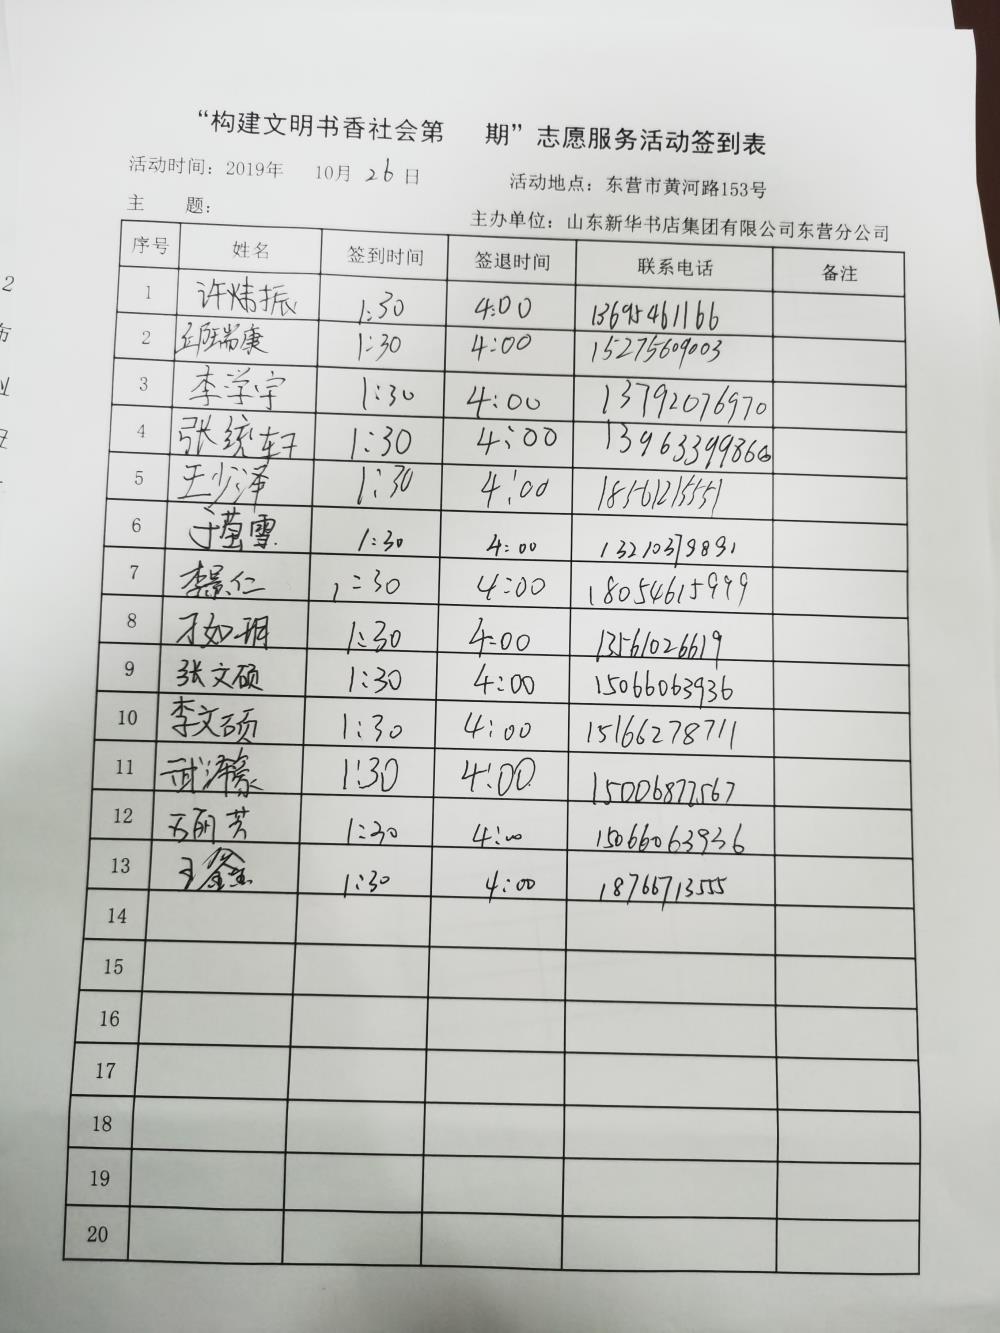 “构建文明书香社会第 期”志愿服务活动签到表
活动时间：2019年 10月 26 日 活动地点：东营市黄河路153号
主 题： 主办单位：山东新华书店集团有限公司东营分公司
序号 姓名 签到时间 签退时间 联系电话 备注
1 许炜振 1:30 4:00 13695461166
2 瑞康 1:30 4:00 15275609003
3 李学宇 1:30 4:00 13792076970
4 张统轩 1:30 4:00 13963399860
5 王少泽 1:30 4:00 18561215551
6 于莹雪 1:30 4:00 13210379891
7 李景仁 1:30 4:00 18054615999
8 1:30 4:00 13561026619
9 张文硕 1:30 4:00 15066063936
10 李文硕 1:30 4:00 15166278711
11 武泽豪 1:30 4:00 15006877567
12 1:30 4:00 15066063936
13 王鑫 1:30 4:00 18766713555
14
15
16
17
18
19
20